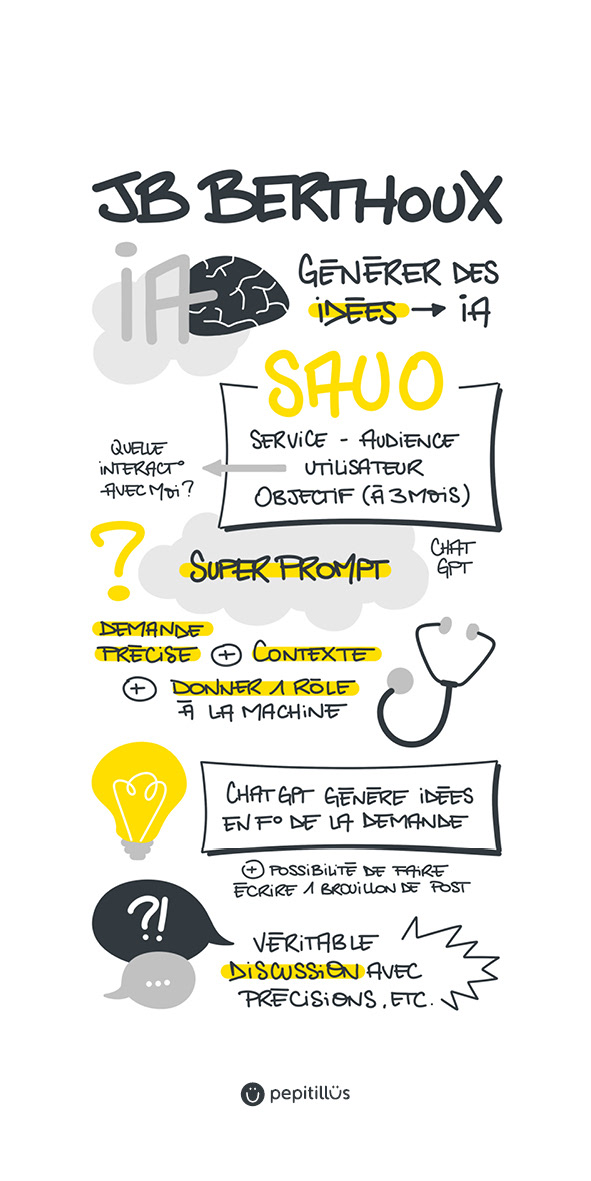 JB BERTHOUX
iA
GÉNÉRER DES
iDÉES → iA
SAUO
SERVICE - AUDIENCE
UTILISATEUR
OBJECTIF (À 3 MOiS)
QUELLE
iNTERACT°
AVEC MOi ?
?
SUPER PROMPT
CHAT
GPT
DEMANDE
PRÉCISE + CONTEXTE
+ DONNER 1 RÔLE
À LA MACHINE
CHATGPT GÉNÈRE iDÉES
EN F° DE LA DEMANDE
+ POSSIBILITÉ DE FAIRE
ÉCRIRE 1 BROUILLON DE POST
?!
...
VÉRITABLE
DISCUSSION AVEC
PRÉCISIONS, ETC.
pepitillüs